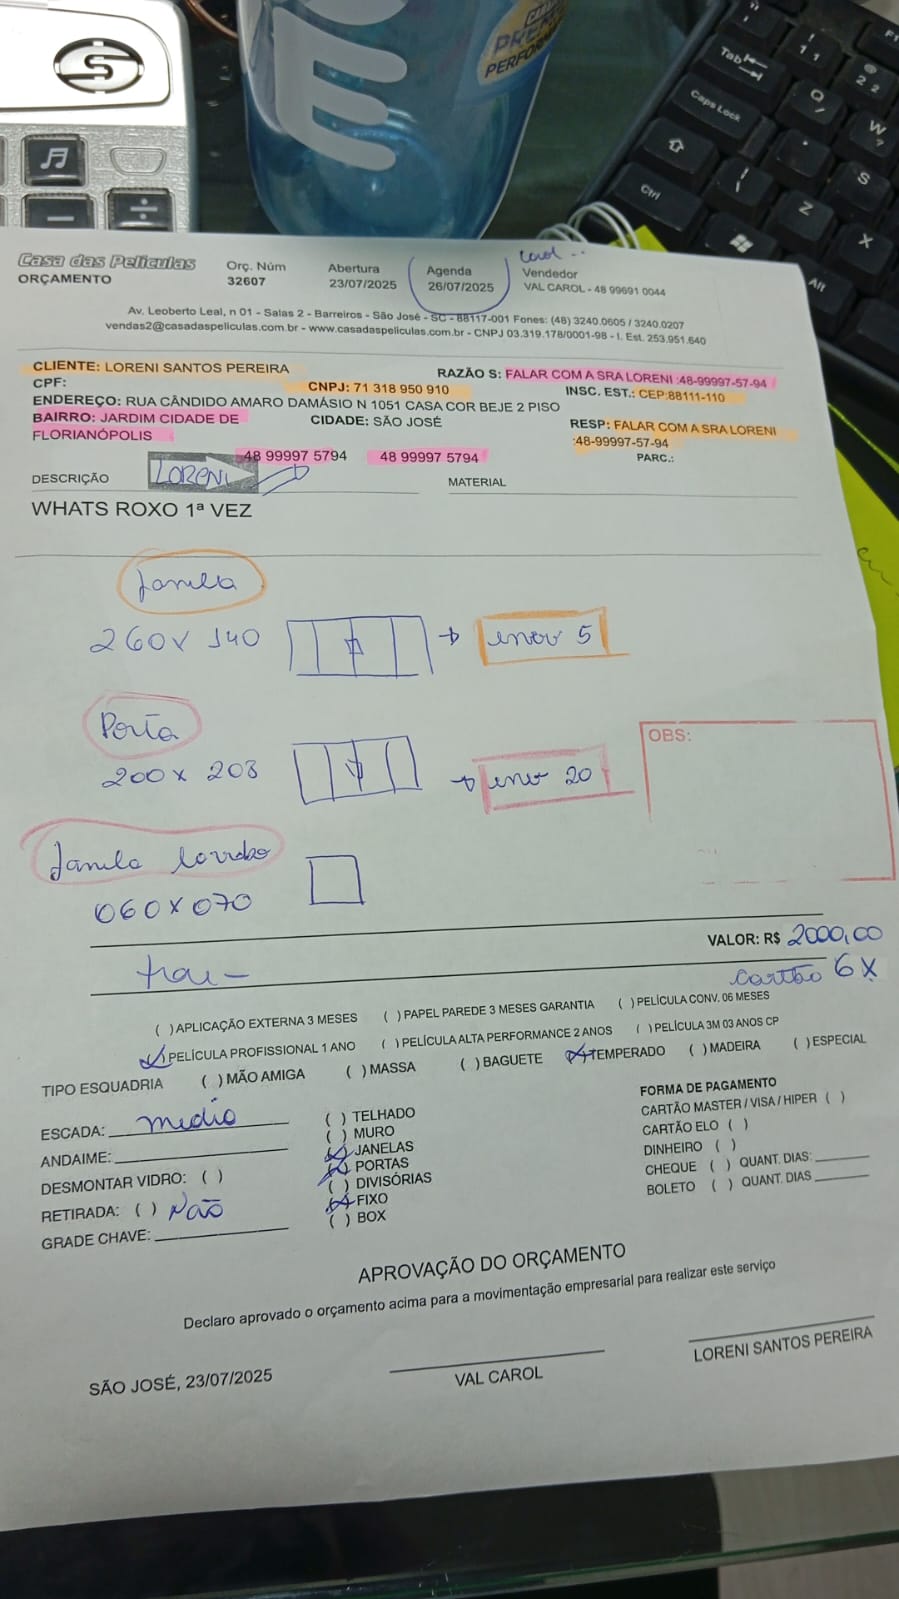 PERFORM
Tab
Caps Lock
Ctrl
Alt
F1
Q
W
S
Z
X
Casa das Películas
ORÇAMENTO
Orç. Núm
32607
Abertura
23/07/2025
Agenda
26/07/2025
Carol
Vendedor
VAL CAROL - 48 99691 0044
Av. Leoberto Leal, n 01 - Salas 2 - Barreiros - São José - SC - 88117-001 Fones: (48) 3240.0605 / 3240.0207
vendas2@casadaspeliculas.com.br - www.casadaspeliculas.com.br - CNPJ 03.319.178/0001-98 - I. Est. 253.951.640
CLIENTE: LORENI SANTOS PEREIRA RAZÃO S: FALAR COM A SRA LORENI :48-99997-57-94
CPF: CNPJ: 71 318 950 910 INSC. EST.: CEP:88111-110
ENDEREÇO: RUA CÂNDIDO AMARO DAMÁSIO N 1051 CASA COR BEJE 2 PISO
BAIRRO: JARDIM CIDADE DE FLORIANÓPOLIS CIDADE: SÃO JOSÉ RESP: FALAR COM A SRA LORENI :48-99997-57-94
48 99997 5794 48 99997 5794 PARC.:
DESCRIÇÃO LORENI MATERIAL
WHATS ROXO 1ª VEZ
Janela
260x 140 enov 5
Porta
200x 203 enov 20
OBS:
Janela
060x070
VALOR: R$ 2000,00
cartão 6x
( )APLICAÇÃO EXTERNA 3 MESES ( )PAPEL PAREDE 3 MESES GARANTIA ( )PELÍCULA CONV. 06 MESES
( )PELÍCULA PROFISSIONAL 1 ANO ( )PELÍCULA ALTA PERFORMANCE 2 ANOS ( )PELÍCULA 3M 03 ANOS CP
TIPO ESQUADRIA ( )MÃO AMIGA ( )MASSA ( )BAGUETE (x)TEMPERADO ( )MADEIRA ( )ESPECIAL
ESCADA: medio
ANDAIME:
DESMONTAR VIDRO: ( )
RETIRADA: ( ) Não
GRADE CHAVE:
( ) TELHADO
( ) MURO
(x) JANELAS
(x) PORTAS
( ) DIVISÓRIAS
(x) FIXO
( ) BOX
FORMA DE PAGAMENTO
CARTÃO MASTER / VISA / HIPER ( )
CARTÃO ELO ( )
DINHEIRO ( )
CHEQUE ( ) QUANT. DIAS:
BOLETO ( ) QUANT. DIAS
APROVAÇÃO DO ORÇAMENTO
Declaro aprovado o orçamento acima para a movimentação empresarial para realizar este serviço
SÃO JOSÉ, 23/07/2025
VAL CAROL
LORENI SANTOS PEREIRA